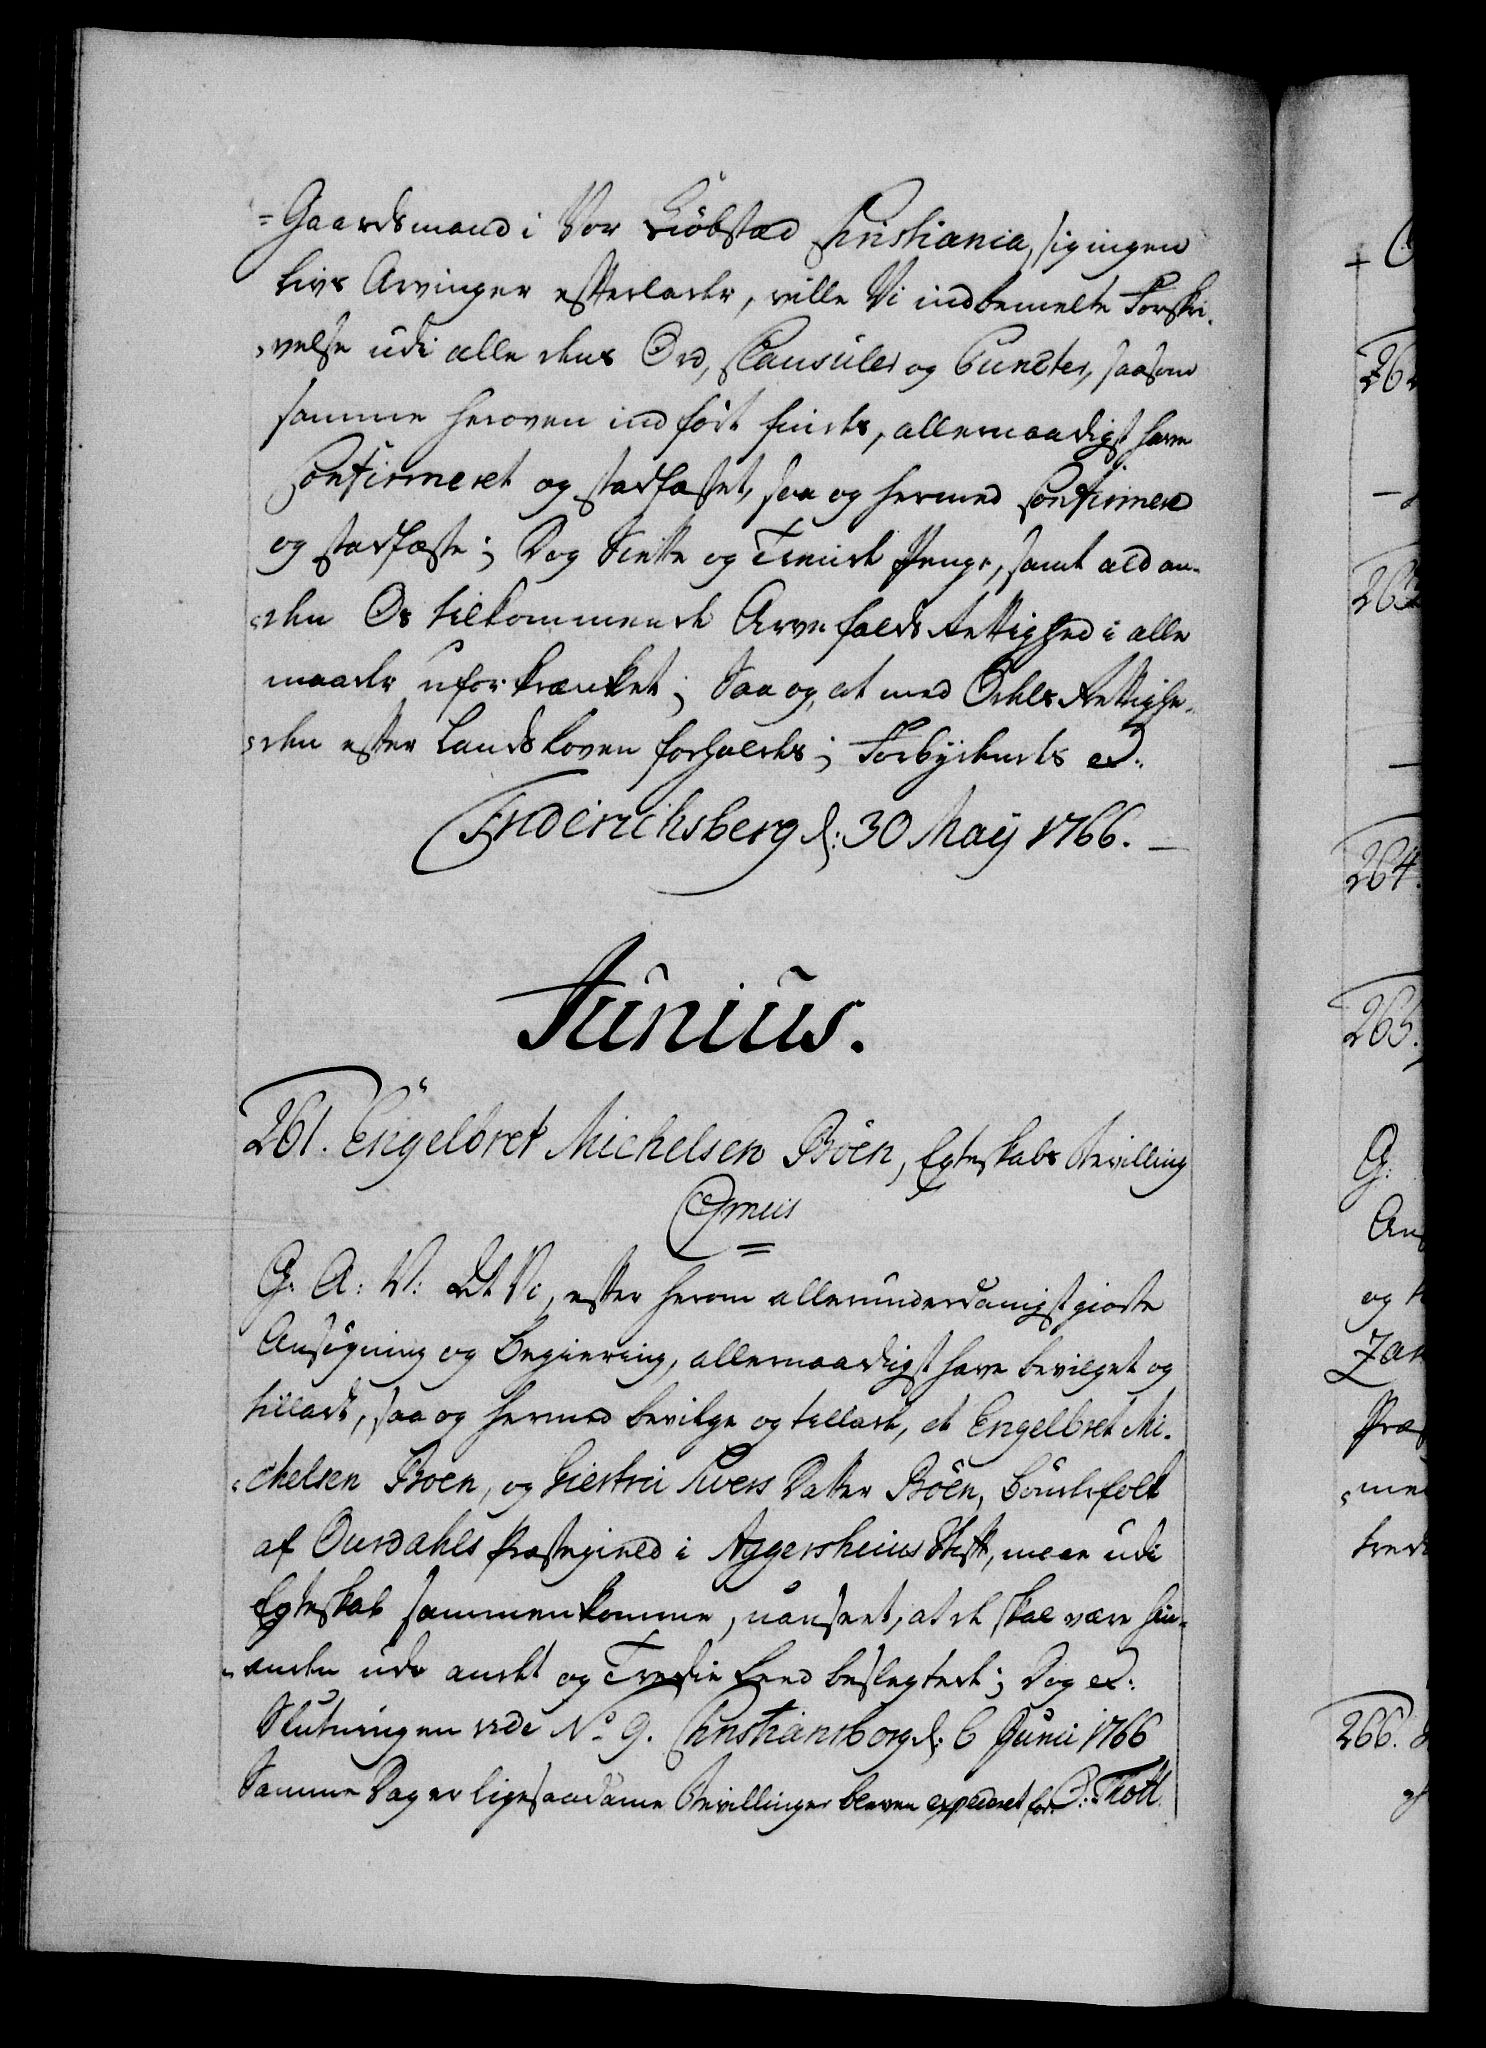 =Gaardsmand i Vor Kiöbstad Christiania, sig ingen
Livs Arvinger efterlader, ville Vi indbemelte Forskri-
velse udi alle dens Ord, Clausuler og Puncter, saasom
samme heroven indfört findes, allernaadigst have
Confirmeret og stadfæstet, saa og hermed Confirmere
og stadfæste; Dog Siette og Tiende Penge, samt ald an-
den Os tilkommende Arvefalds Rettighed i alle
maader uforkrænket; Saa og, at med Odels Rettighe-
den efter Landsloven forholdes; Forbydendes etc:
Friderichsberg d: 30 Maÿ 1766. —
Junius.
261. Engelbret Michelsen Böen, Egteskabs Bevilling
Gratis
G. A: V: At Vi, efter herom allerunderdanigst giorte
Ansögning og Begiering, allernaadigst have bevilget og
tilladt, saa og hermed bevilge og tillade, at Engelbret Mi-
chelsen Böen, og Giertru Sivers Datter Böen, Bondefolk
af Ourdahls Præstegield i Aggershuus Stift, maae udi
Egteskab sammenkomme, uanseet, at de skal være hin-
anden udi andet og Tredie Leed beslegtede; Dog etc:
Slutningen vide No 9. Christiansborg d: 6 Junii 1766
Samme Dag er ligesaadanne Bevillinger bleven expederet for O: Thott
266.
264.
265.
G.
og